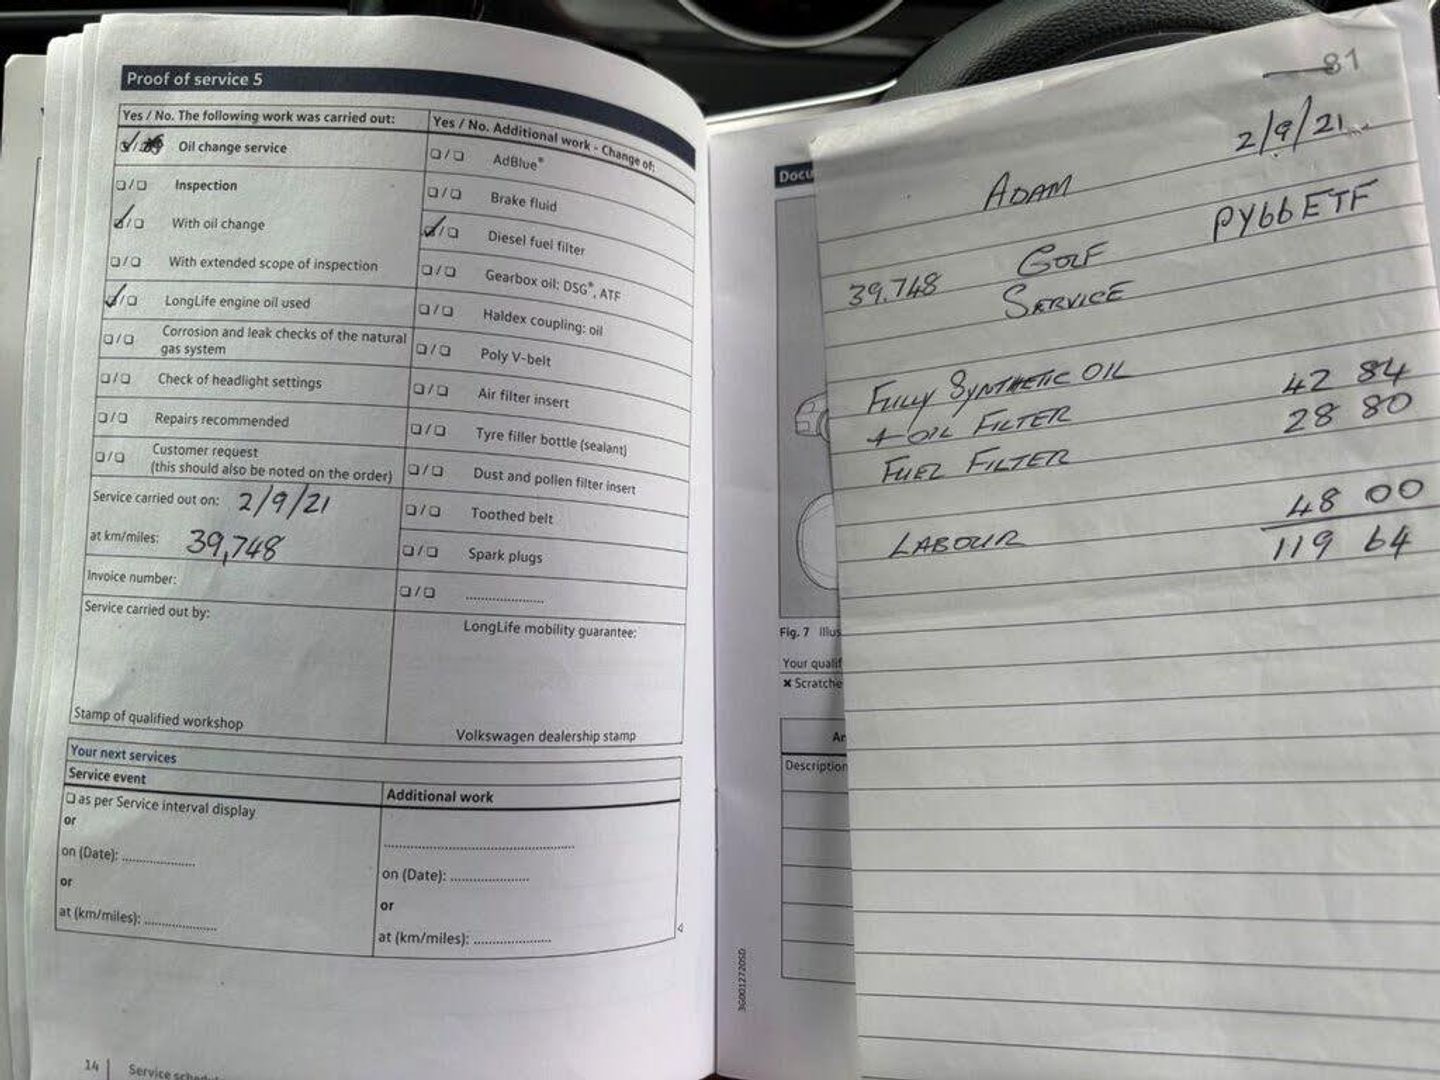 Proof of service 5
Yes / No. The following work was carried out:
Oil change service
❏/❏ Inspection
❏ With oil change
❏/❏ With extended scope of inspection
❏ LongLife engine oil used
❏/❏ Corrosion and leak checks of the natural
gas system
❏/❏ Check of headlight settings
❏/❏ Repairs recommended
❏/❏ Customer request
(this should also be noted on the order)
Service carried out on: 2/9/21
at km/miles: 39,748
Invoice number:
Service carried out by:
Stamp of qualified workshop
Yes / No. Additional work - Change of:
❏/❏ AdBlue®
❏/❏ Brake fluid
❏ Diesel fuel filter
❏/❏ Gearbox oil: DSG®, ATF
❏/❏ Haldex coupling: oil
❏/❏ Poly V-belt
❏/❏ Air filter insert
❏/❏ Tyre filler bottle (sealant)
❏/❏ Dust and pollen filter insert
❏/❏ Toothed belt
❏/❏ Spark plugs
❏/❏ ......................
LongLife mobility guarantee:
Volkswagen dealership stamp
Your next services
Service event
❏ as per Service interval display
or
on (Date): ....................
or
at (km/miles): ....................
Additional work
......................................................
on (Date): ......................
or
at (km/miles): ......................
14 Service
3G0012720SD
Docu
Fig. 7 Illus
Your qualif
✖ Scratche
Ar
Description
81
2/9/21
ADAM
PY66ETF
GOLF
39.748
SERVICE
FULLY SYNTHETIC OIL 42 84
+ OIL FILTER 28 80
FUEL FILTER
LABOUR 48 00
119 64